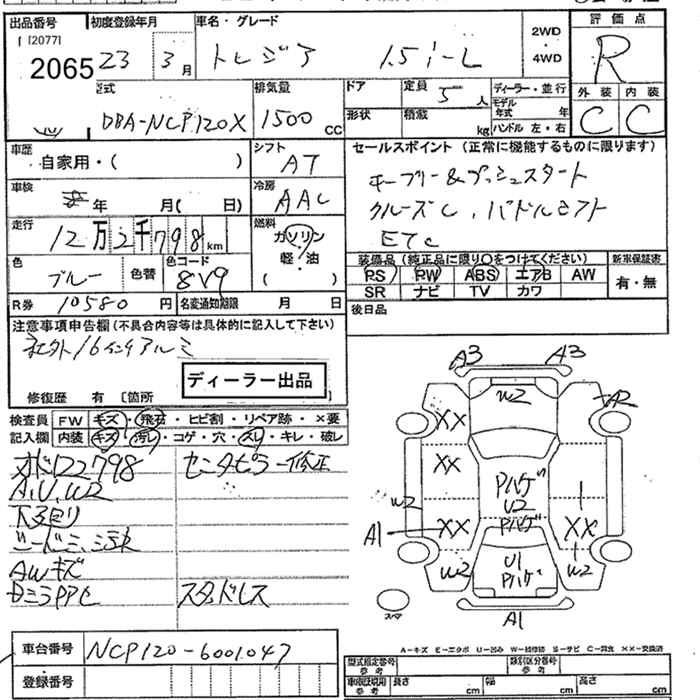 出品番号 初度登録年月 車名・グレード
[ [2077]
2065 23 3月 トレジア 1.5 i-L
2WD
・
4WD
評価点
R
外装 内装
C C
型式 DBA-NCP120X
排気量 1500 CC
ドア 定員 5人 ディーラー・並行
形状 積載 kg モデル年式 年
ハンドル 左・右
車歴 自家用・( )
シフト AT
車検 年 月( 日)
冷房 AAC
走行 12万2千798km
燃料 ガソリン
軽・油
( )
色 ブルー 色替 色コード 8V9
R券 10580円 名変通知期限 月 日
セールスポイント (正常に機能するものに限ります)
キーフリー&プッシュスタート
クルーズC, パドルシフト
ETC
装備品 (純正品に限り○をつけてください) 新車保証書
PS PW ABS エアB AW 有・無
SR ナビ TV カワ
後日品
注意事項申告欄 (不具合内容等は具体的に記入して下さい)
社外16インチアルミ
ディーラー出品
修復歴 有 〔箇所 〕
検査員 FW キズ・飛石・ヒビ割・リペア跡・×要
記入欄 内装 キズ・汚レ・コゲ・穴・スレ・キレ・破レ
122798 センターピラー修正
A,U,W2
下回り
AWキズ
スタッドレス
A3 A3
W2
XX
XX
W2
Pハゲ
U2
Pハゲ
A1 XX XX
W2 U1 W2
Pハゲ
スペア
A1
A-キズ E-エクボ U-凹み W-補修跡 S-サビ C-腐食 XX-交換済
車台番号 NCP120-6001047
登録番号
型式指定番号 参考 類別区分番号 参考
車検証規用 参考 長さ cm 幅 cm 高さ cm